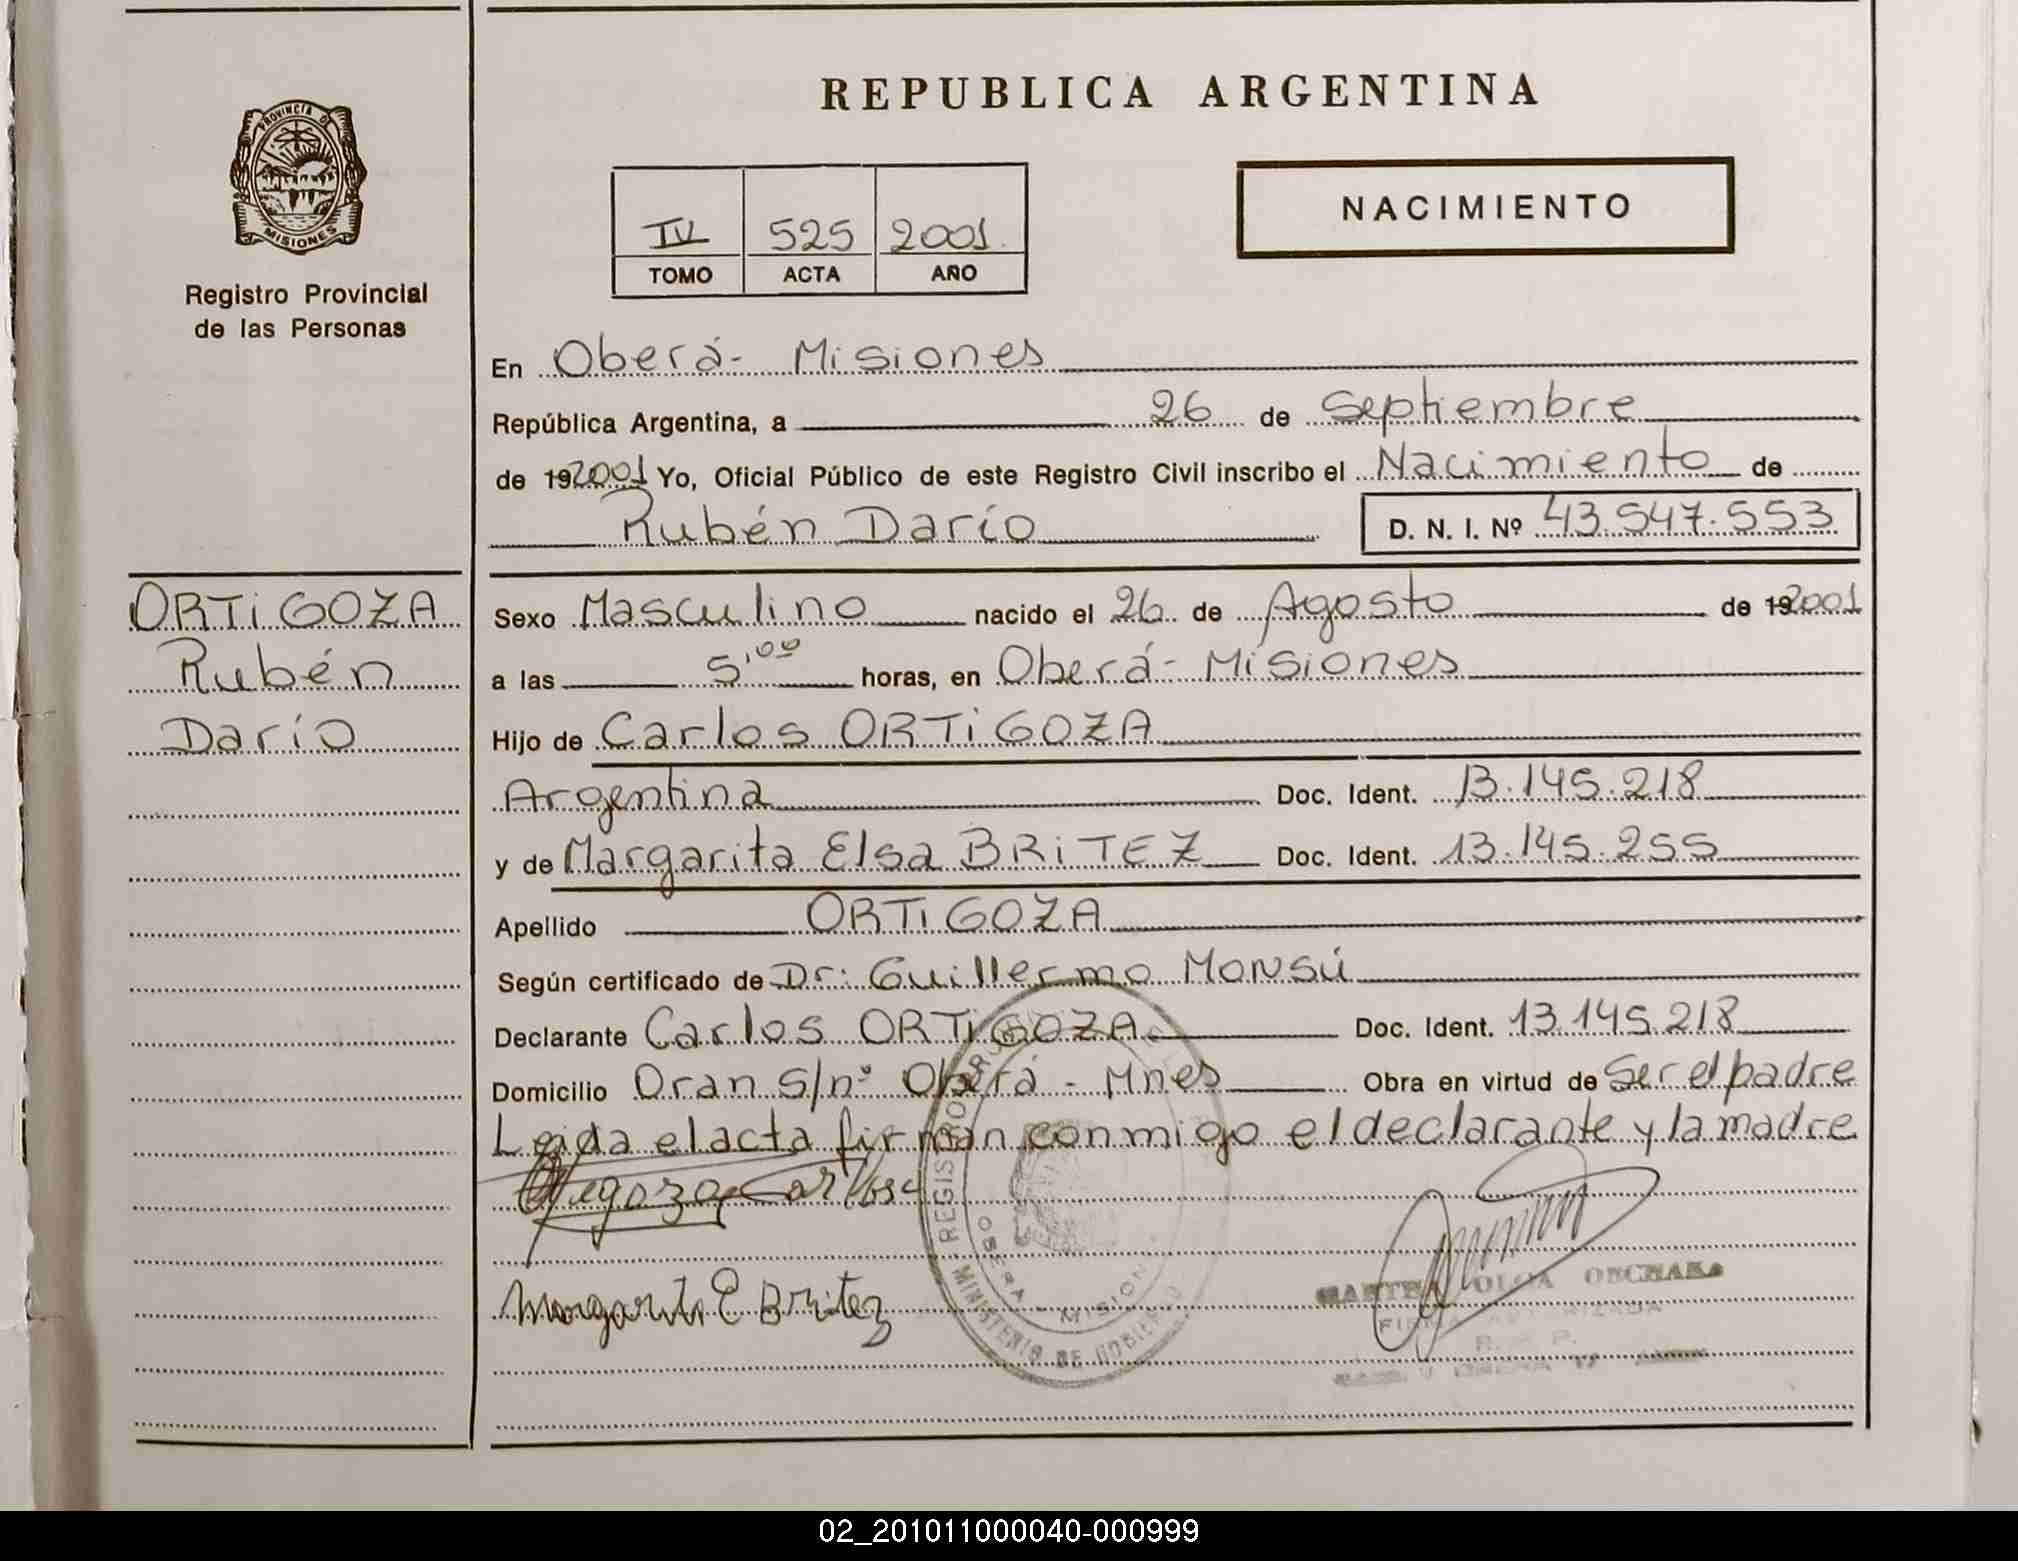 REPUBLICA ARGENTINA
PROVINCIA DE
MISIONES
Registro Provincial
de las Personas
NACIMIENTO
IV 525 2001
TOMO ACTA AÑO
En Oberá - Misiones
República Argentina, a 26 de Septiembre
de 192001 Yo, Oficial Público de este Registro Civil inscribo el Nacimiento de
Rubén Darío D. N. I. Nº 43.547.553
ORTIGOZA
Rubén
Darío
Sexo Masculino nacido el 26 de Agosto de 192001
a las 5,00 horas, en Oberá - Misiones
Hijo de Carlos ORTIGOZA
Argentina Doc. Ident. 13.145.218
y de Margarita Elsa BRITEZ Doc. Ident. 13.145.255
Apellido ORTIGOZA
Según certificado de Dr: Guillermo MONSÚ
Declarante Carlos ORTIGOZA Doc. Ident. 13.145.218
Domicilio Oran S/nº Oberá - Mnes Obra en virtud de Ser el padre
Leida el acta firman conmigo el declarante y la madre
Carlos
Margarita E Britez
OBERA - MISION
MINISTERIO DE GOBIERNO
OLGA
FIRMA AUTORIZADA
R. P.
02_201011000040-000999